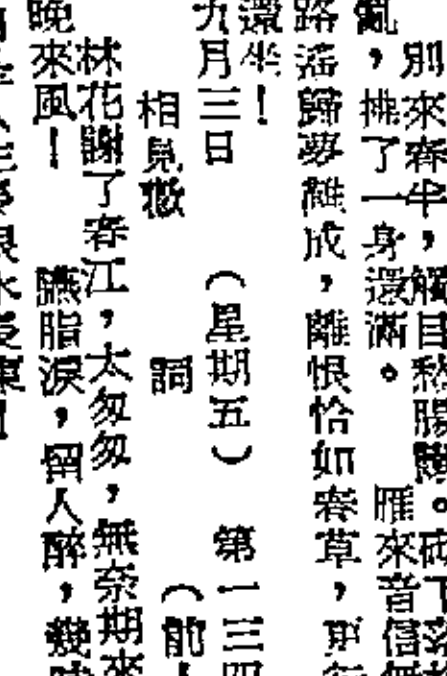 別來春半，觸目愁腸斷。砌下落
亂，拂了一身還滿。　雁來音信無
路遙歸夢難成，離恨恰如春草，更行
還坐！
九月三日　（星期五）　第一三四
相見歡　　詞　　（前
林花謝了春江，太匆匆，無奈期來
晚來風！　臙脂淚，留人醉，幾時
恨水長東